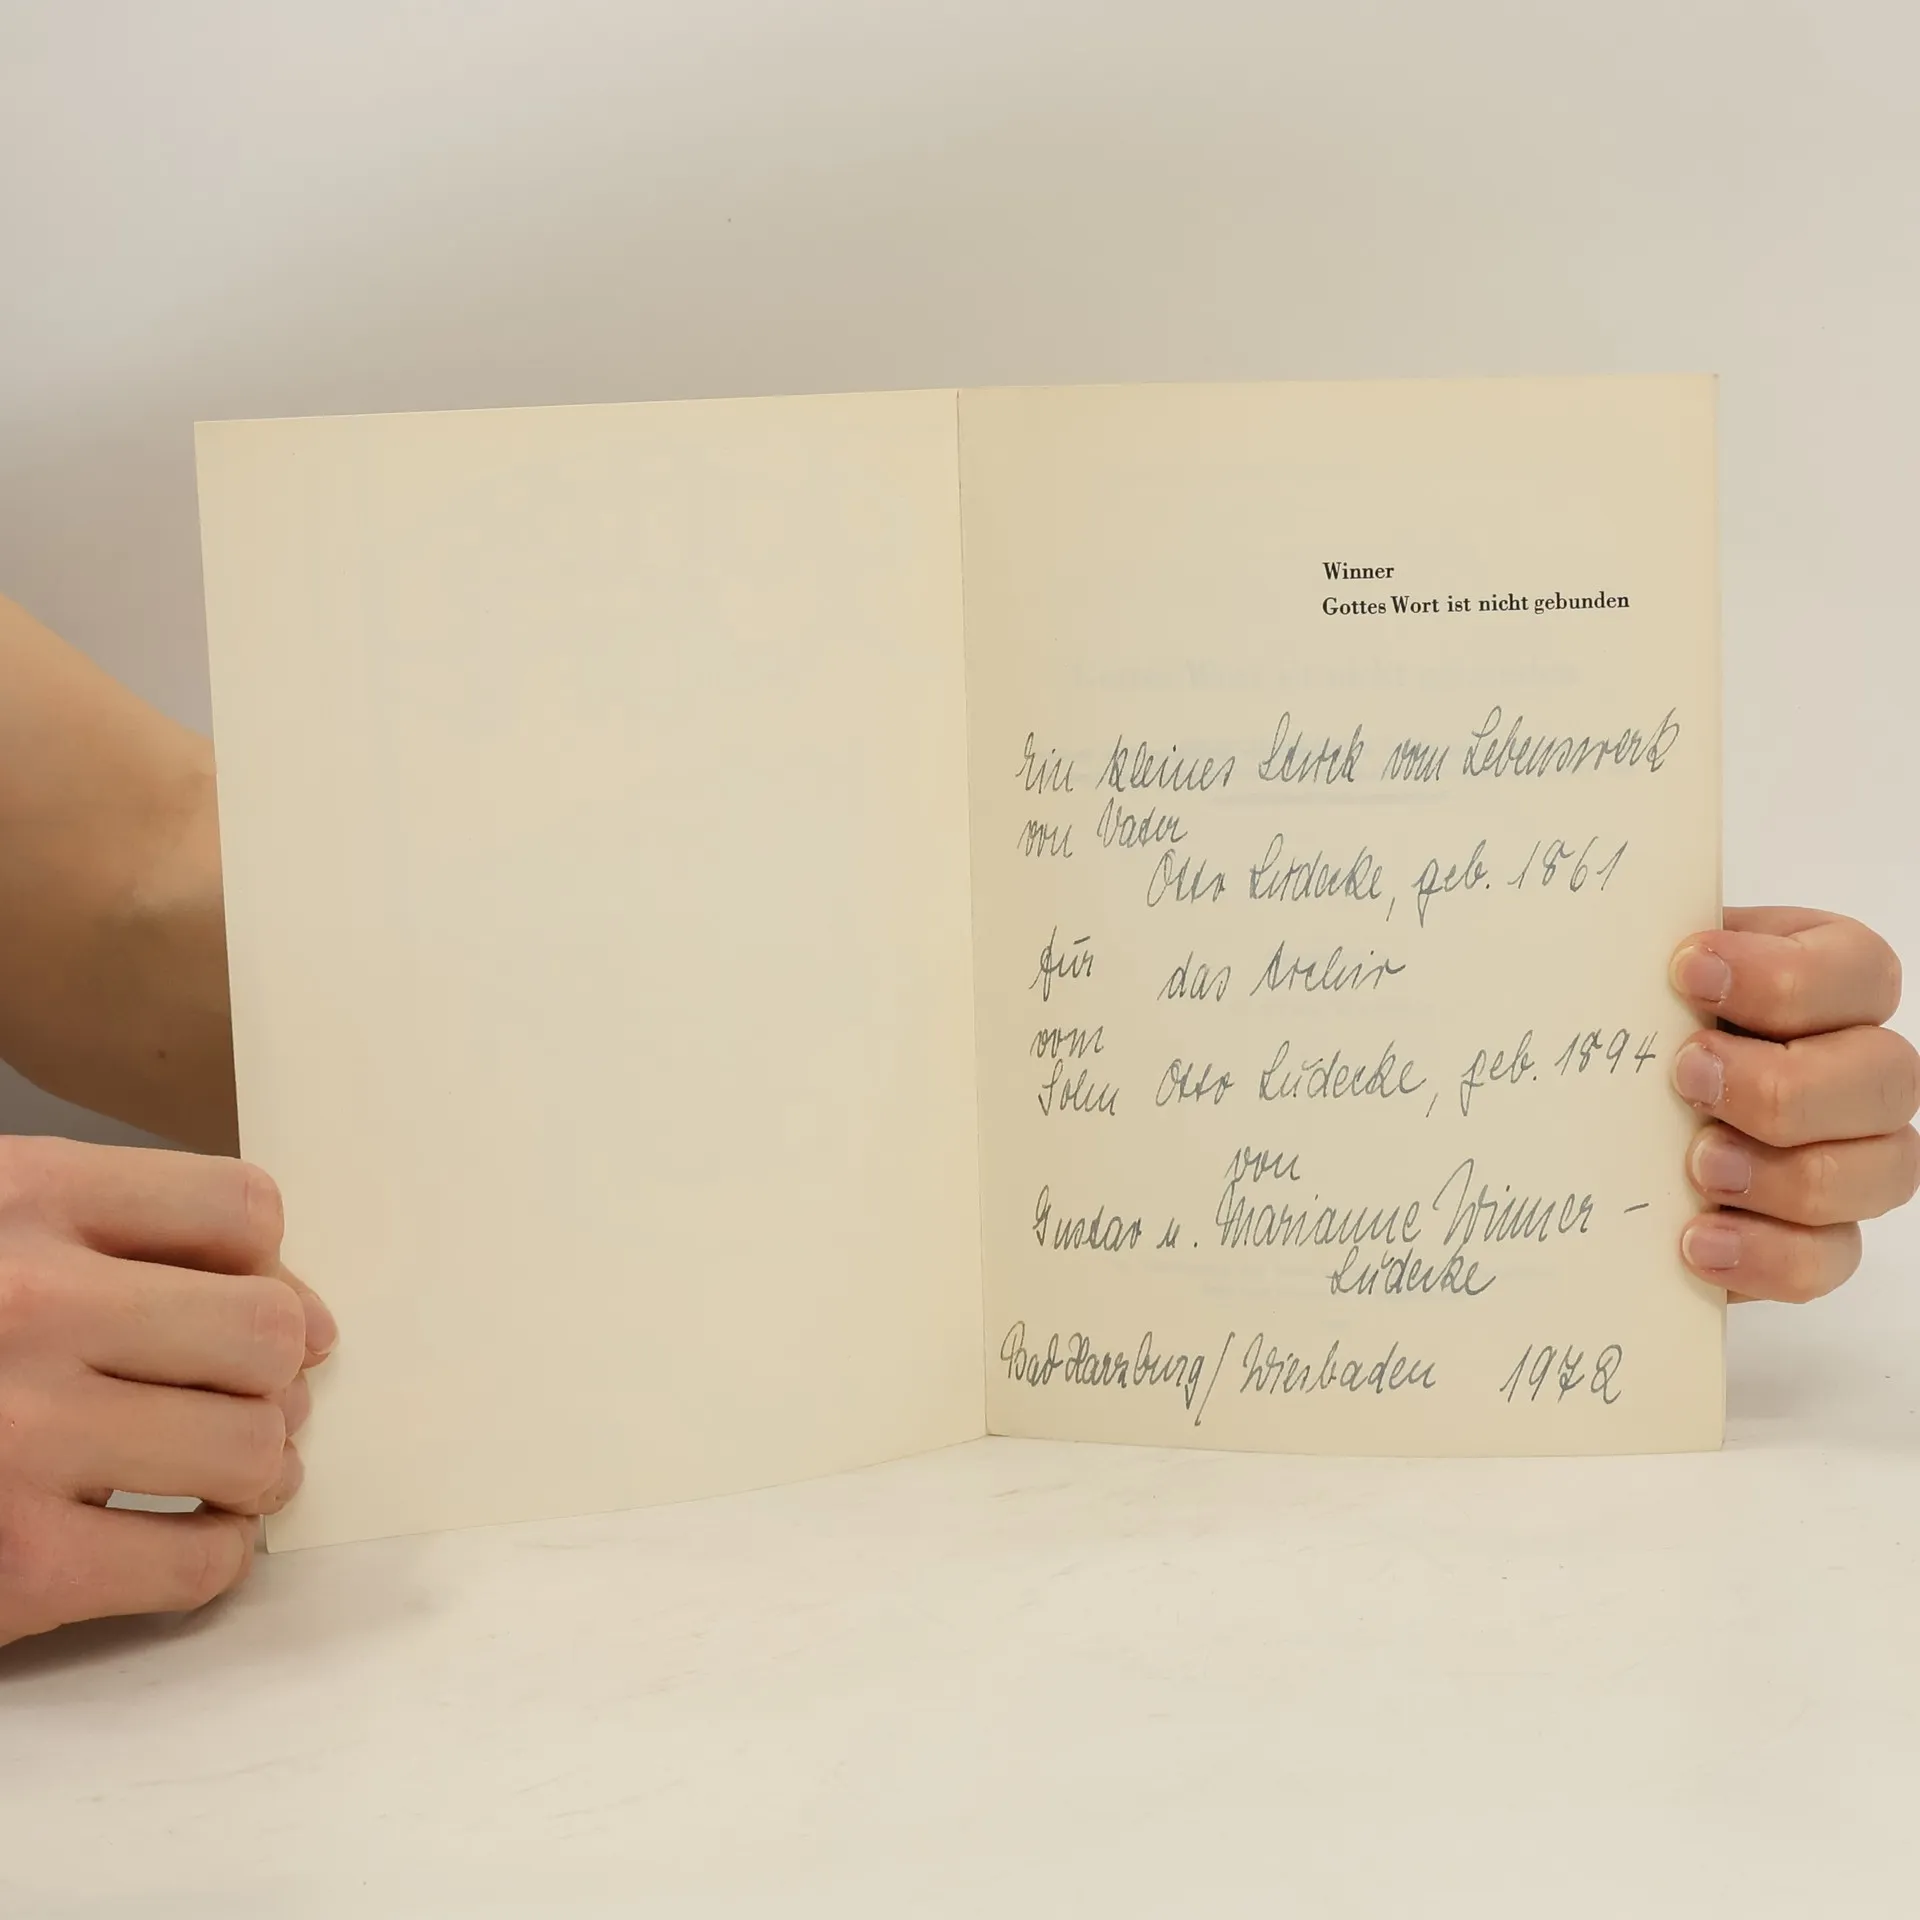 Winner
Gottes Wort ist nicht gebunden
Ein kleines Stück vom Lebenswerk
von Vater
Otto Lüdecke, geb. 1861
für das Archiv
vom
Sohn Otto Lüdecke, geb. 1894
von
Gustav u. Marianne Winner –
Lüdecke
Bad Harzburg / Wiesbaden 1972